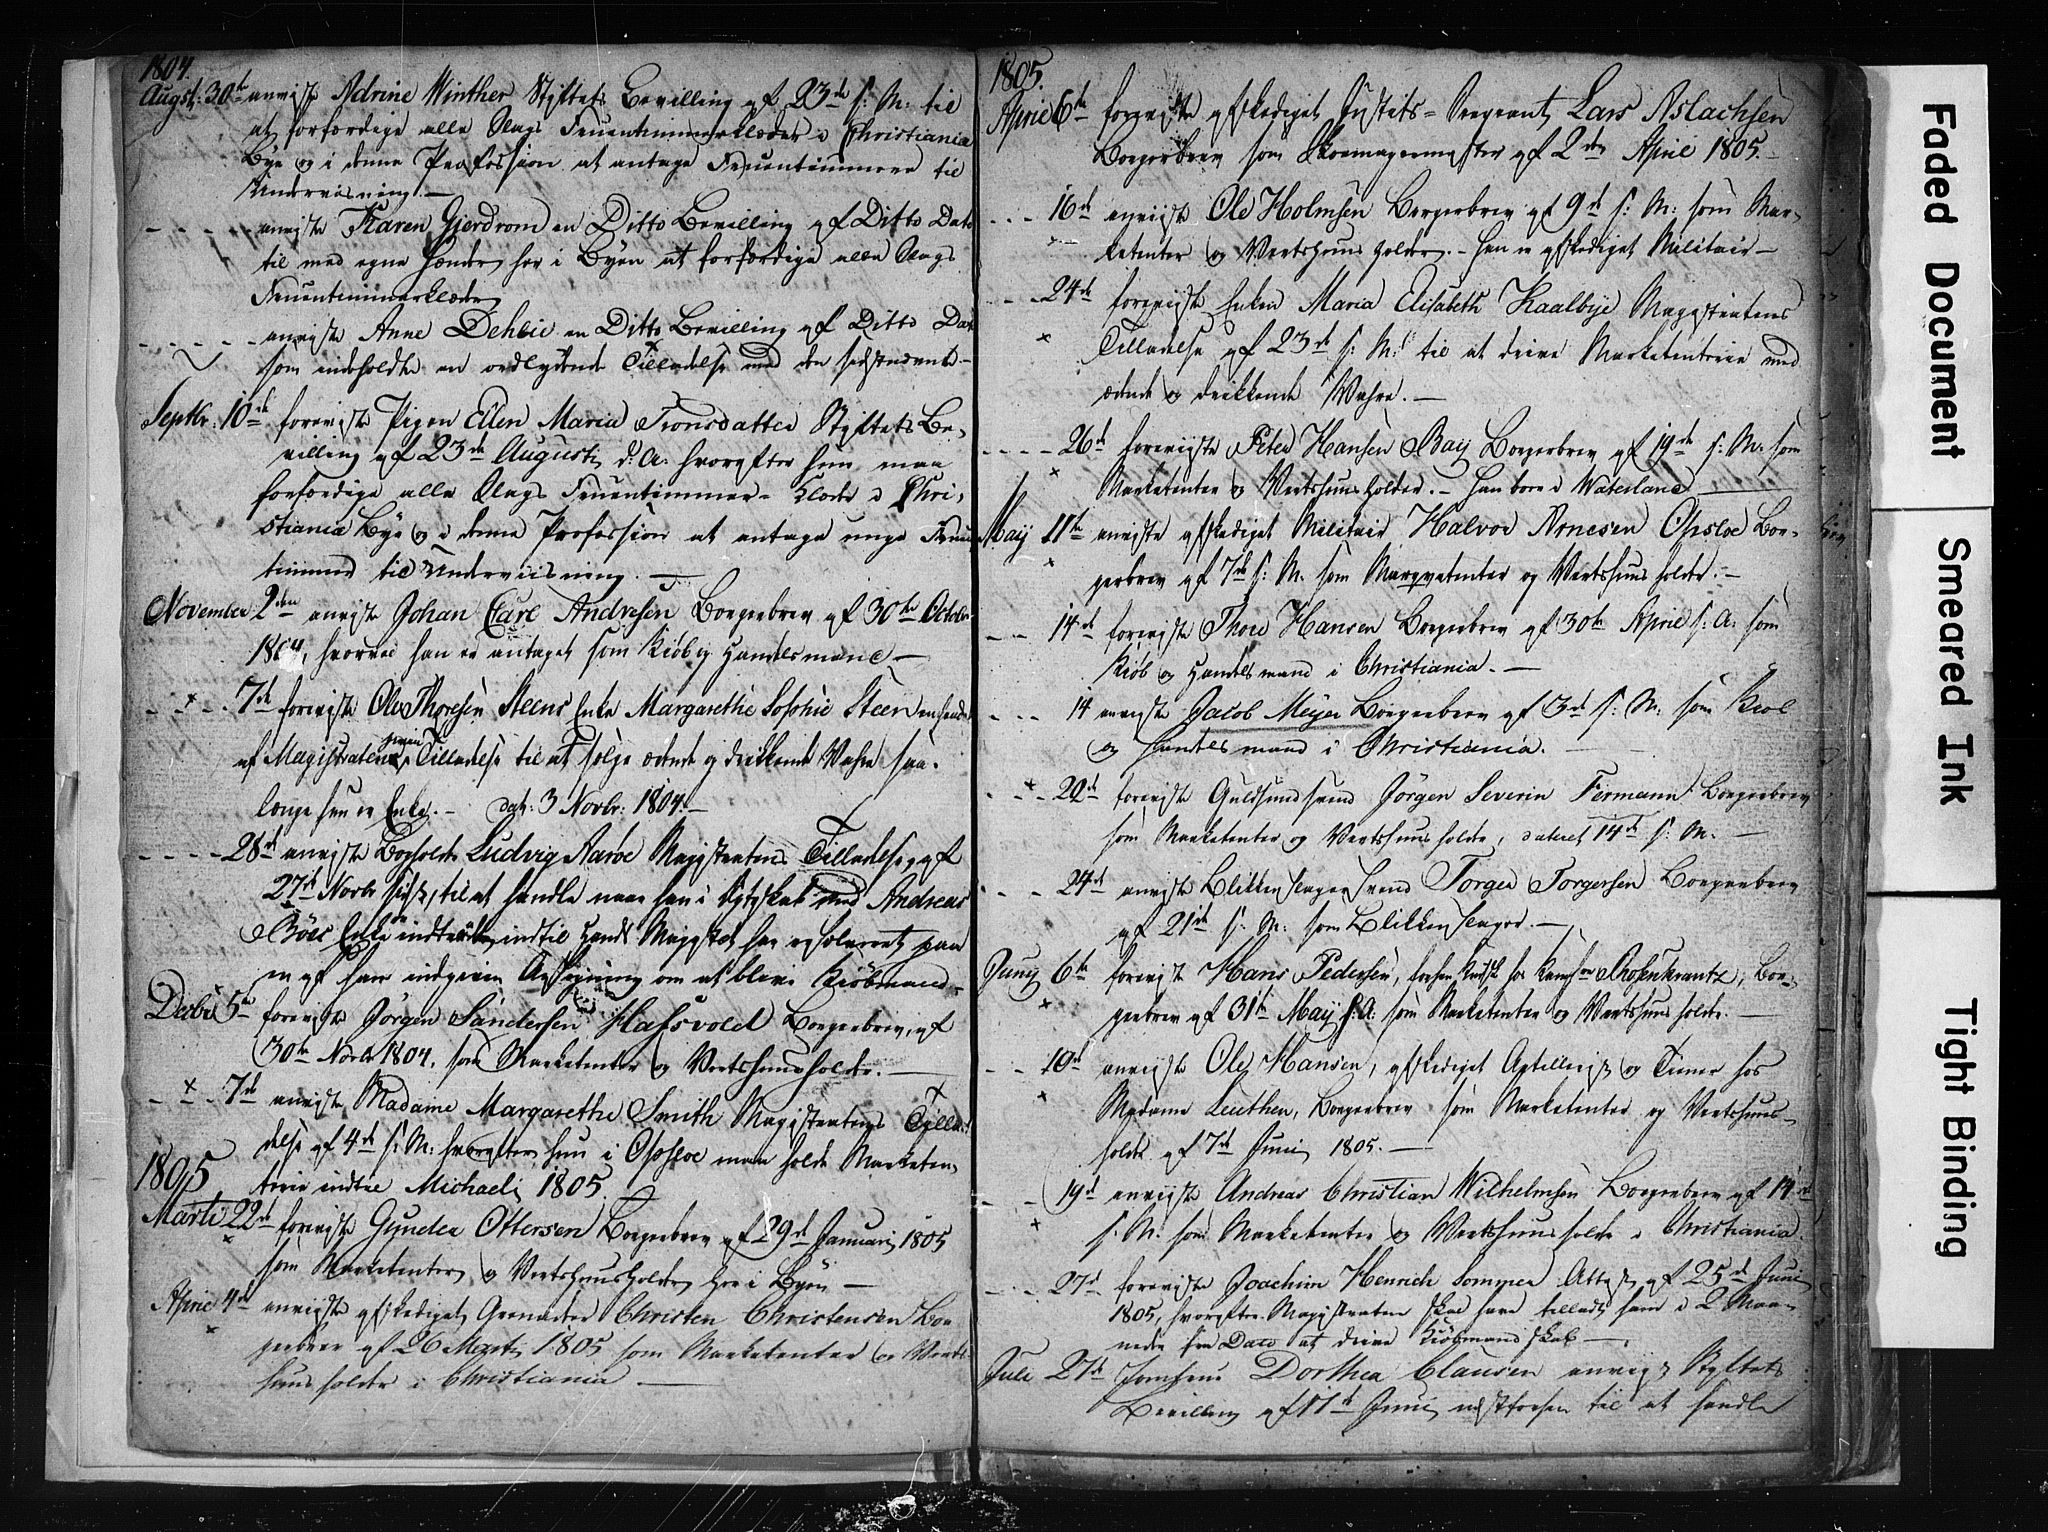 1804.
Augst: 30te anviste Adrine Winther Stiftets Bevilling af 23de s: M: til
at forfærdige alle Slags Fruentimmerklæder i Christiania
Bye og i denne Profession at antage Fruentimmere til
Underviisning. —
- - - - - anviste Karen Gjerdrom en Ditto Bevilling af Ditto Dato
til med egne Hænder her i Byen at forfærdige alle Slags
Fruentimmerklæder
- - - - - anviste Anne Dehlie en Ditto Bevilling af Ditto Dat
som indeholdte en ordlydende Tilladelse med den
Septbr: 10de foreviste Pigen Ellen Maria Tronsdatter Stiftets Be-
villing af 23de Augusti d: A: hvorefter hun maa
forfærdige alle Slags Fruentimmer-Klæder i Chri-
stiania Bye og i denne Profession at antage unge Fruen
timmer til Underviisning. —
November 2den anviste Johan Carl Andresen Borgerbrev af 30te Octobr
1804, hvorved han er antaget som Kiøb og Handelsmand —
- - x - 7de foreviste Ole Thoresen Steens Enke Margarethe Sophie Steen en hende
af Magistraten given Tilladelse til at sælge ædende og drikkende Vahre saa-
længe hun er Enke. — dat: 3 Novbr: 1804. —
- - - - 28de anviste Ludvig Aaroe Magistratens Tilladelse, af
27de Novbr til at handle naar han i med Andreas
Böes Enke indtil Magistrat har paa
en af ham indgiven Ansøgning om at blive Kiøbmand. —
Decbr: 5te foreviste Jörgen Sandersen Hafsvold Borgerbrev, af
30te Novbr 1804, som Marketenter og Vertshuusholder. —
- x - 7de anviste Madame Margarethe Smith Magistratens Tilla-
delse af 4de s: M: hvorefter hun i Opsloe maa holde Marketen-
terie indtil Michaeli 1805.
1805
Marti 22de foreviste Gunder Ottersen Borgerbrev af 29de Januari 1805
x
som Marketenter og Vertshuusholder her i Byen —
April 4de anviste afskediget Grenadeer Christen Christensen Bor
x
gerbrev af 26 Marti 1805 som Marketenter og Verts-
huusholder i Christiania —
1805.
April 6te foreviste afskediget Sergeant Lars Aslachsen
Borgerbrev som Skoemagermester af 2den April 1805. —
- - - 16de anviste Ole Holmsen Borgerbrev af 9de s: M: som Mar-
x
ketenter og Vertshuusholder. — han er afskediget Militair —
- - - 24de foreviste Enken Maria Elisabeth Kaalbye Magistratens
x
Tilladelse af 23de s: M: til at drive Marketenterie med
ædende og drikkende Vahre. —
- - - - 26de foreviiste Peter Hansen Bay Borgerbrev af 19de s: M: som
x
Marketenter og Vertshuusholder. — han boer i Waterland
May 11te anviste afskediget Militair Halvor Arnesen Opsloe Bor-
x
gerbrev af 7de s: M. som Marqvetenter og Vertshuusholder. —
- - 14de foreviste Thore Hansen Borgerbrev af 30te April s: A: som
Kiøb og Handelsmand i Christiania. —
- - - 14 anviste Jacob Meyer Borgerbrev af 3de s: M: som Kiøb
og Handelsmand i Christiania. —
- x - 20de foreviste Guldsmedsvend Jörgen Severin Fermann Borgerbrev
som Marketenter og Vertshuusholder, dateret 14de s: M. —
- - - 24de anviste Blikkenslagersvend Torger Torgersen Borgerbrev
af 21de s: M. som Blikkenslager. —
Junij 6te foreviste Hans Pedersen, forhen Kudsk hos Rosenkrantz, Bor-
x
gerbrev af 31te May s: A: som Marketenter og Vertshuusholder. —
- - 10de anviste Ole Hansen, afskediget Artillerist og Tiener hos
x
Madame Leuthen, Borgerbrev som Marketenter og Vertshuus-
holder af 7de Juni 1805. —
- - 19de anviiste Andreas Christian Wilhelmsen Borgerbrev af 14de
x
s: M: som Marketenter og Vertshuusholder i Christiania
- - - 27de foreviste Joachim Henrich Sommer Attest af 25de Juni
1805, hvorefter Magistraten skal have tilladt ham i 2 Maa-
neder fra Dato at drive Kiøbmandskab —
Juli 27de Jomfrue Dorthea Clausen anviist Stiftets
Bevilling af 11te Juni til at handle
Faded Document
Smeared Ink
Tight Binding